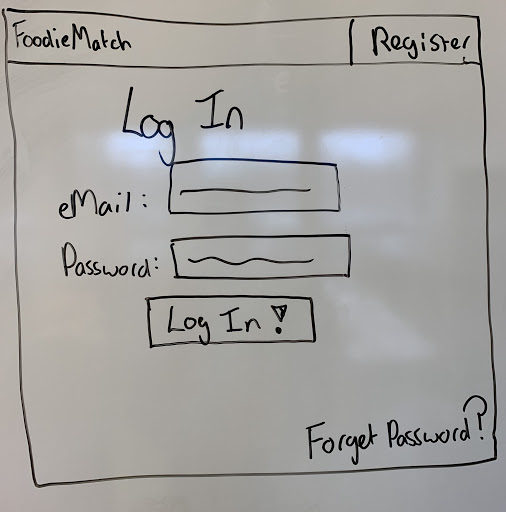 FoodieMatch
Register
Log In
eMail:
Password:
Log In !
Forget Password?